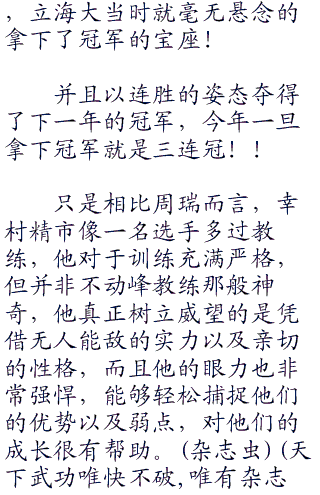 ，立海大当时就毫无悬念的
拿下了冠军的宝座！
并且以连胜的姿态夺得
了下一年的冠军，今年一旦
拿下冠军就是三连冠！！
只是相比周瑞而言，幸
村精市像一名选手多过教
练，他对于训练充满严格，
但并非不动峰教练那般神
奇，他真正树立威望的是凭
借无人能敌的实力以及亲切
的性格，而且他的眼力也非
常强悍，能够轻松捕捉他们
的优势以及弱点，对他们的
成长很有帮助。(杂志虫)(天
下武功唯快不破,唯有杂志